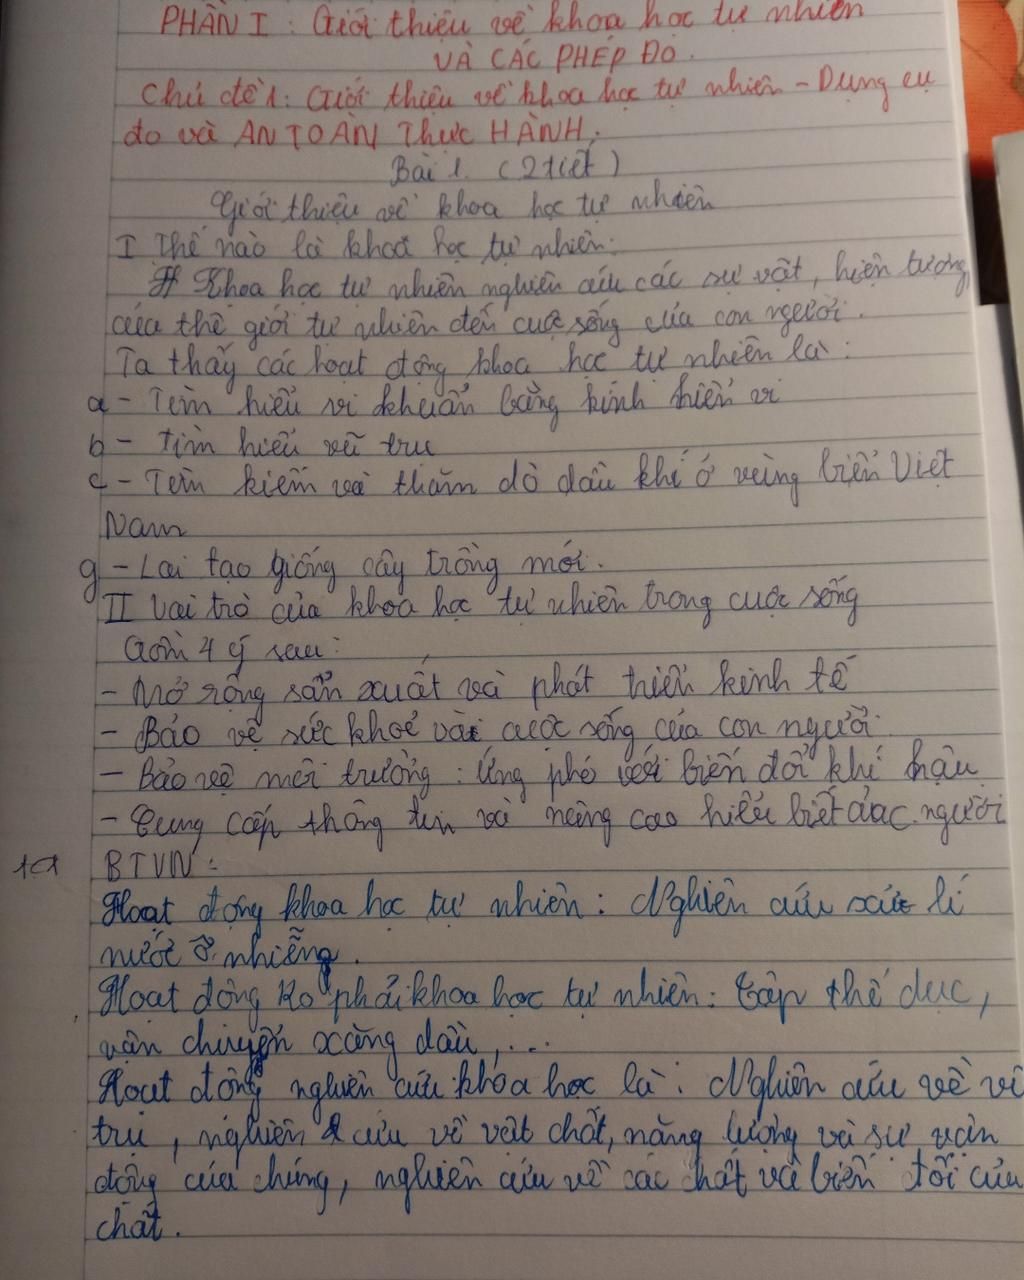 PHẦN I : Giới thiệu về khoa học tự nhiên
VÀ CÁC PHÉP ĐO.
Chủ đề 1: Giới thiệu về khoa học tự nhiên - Dụng cụ
đo và AN TOÀN Thực HÀNH.
Bài 1. (2 tiết)
Giới thiệu về khoa học tự nhiên
I Thế nào là khoa học tự nhiên:
# Khoa học tự nhiên nghiên cứu các sự vật, hiện tượng
của thế giới tự nhiên đến cuộc sống của con người.
Ta thấy các hoạt động khoa học tự nhiên là:
a - Tìm hiểu vi khuẩn bằng kính hiển vi
b - Tìm hiểu vũ trụ
c - Tìm kiếm và thăm dò dầu khí ở vùng biển Việt
Nam
g - Lai tạo giống cây trồng mới.
II Vai trò của khoa học tự nhiên trong cuộc sống
Gồm 4 ý sau:
- Mở rộng sản xuất và phát triển kinh tế
- Bảo vệ sức khoẻ và cuộc sống của con người.
- Bảo vệ môi trường : Ứng phó với biến đổi khí hậu
- Cung cấp thông tin và nâng cao hiểu biết của c.người
BTVN:
Hoạt động khoa học tự nhiên : Nghiên cứu xử lí
nước ô nhiễm.
Hoạt động ko phải khoa học tự nhiên: Tập thể dục,
vận chuyển xăng dầu,...
Hoạt động nghiên cứu khoa học là: Nghiên cứu về vũ
trụ, nghiên cứu về vật chất, năng lượng và sự vận
động của chúng, nghiên cứu về các chất và biến đổi của
chất.